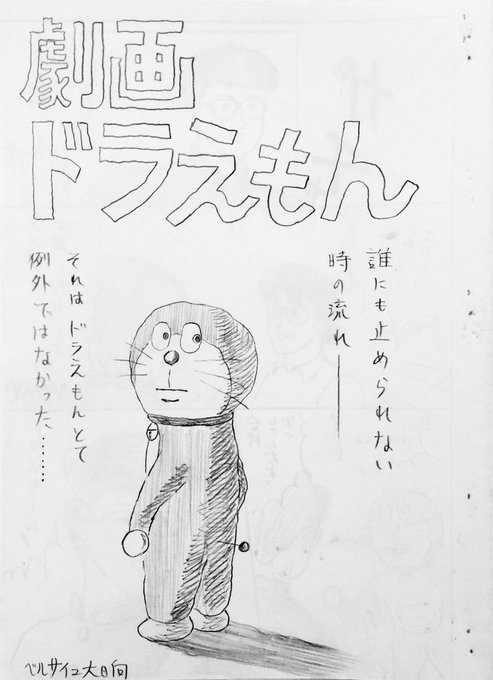 劇画
ドラえもん
誰にも止められない
時の流れ――
それはドラえもんとて
例外ではなかった……
ベルサイユ大日向